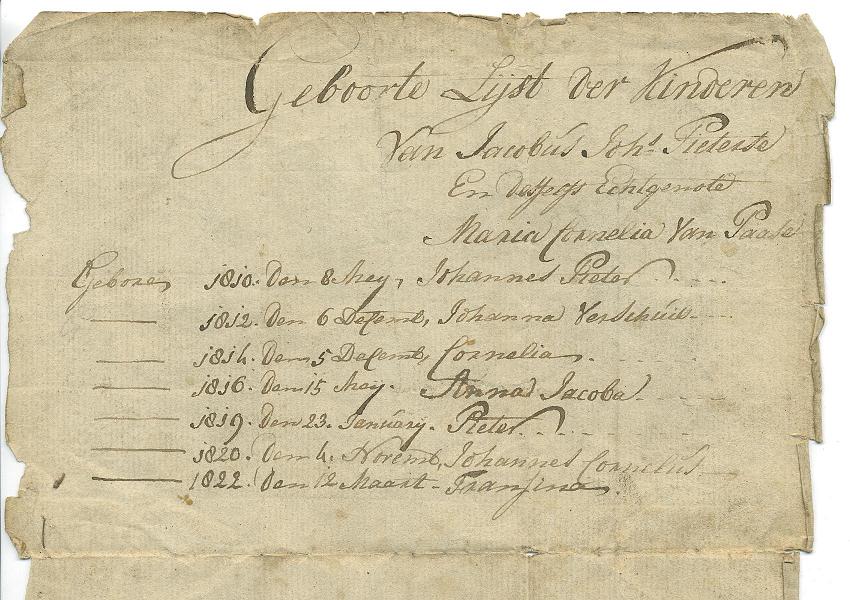 Geboorte Lijst der Kinderen
Van Jacobus Johs Pieterse
En desselfs Echtgenote
Maria Cornelia Van Paasse
Geboren 1810. Den 8 Mey, Johannes Pieter
1812. Den 6 Decemb, Johanna Verschuil
1814. Den 5 Decemb, Cornelia.
1816. Den 15 Mey. Anna Jacoba.
1819. Den 23. January. Pieter.
1820. Den 4. Novemb, Johannes Cornelus
1822. Den 12 Maart - Fransina.